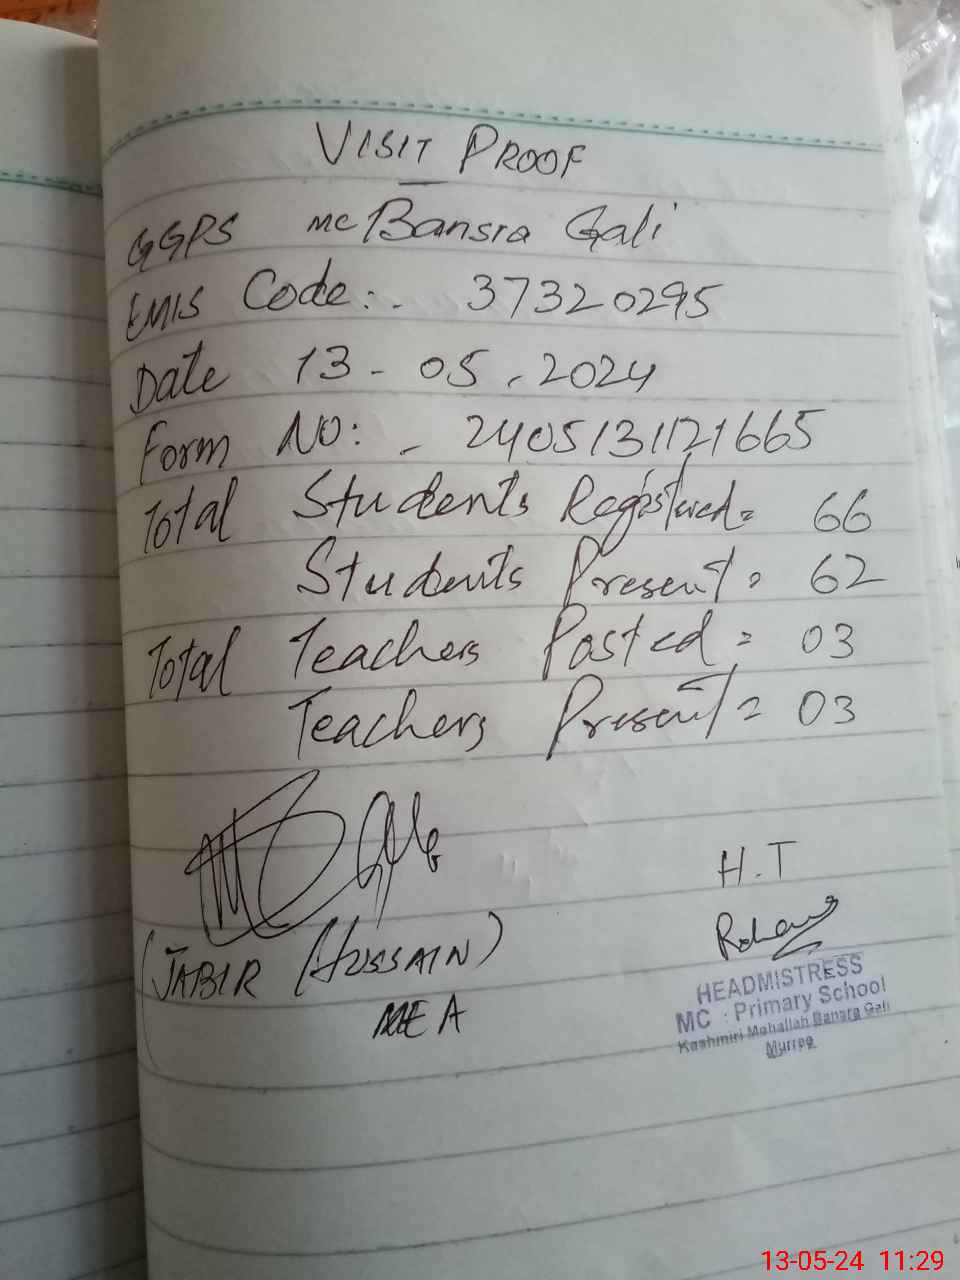 VISIT PROOF
GGPS MC Bansra Gali
EMIS Code:- 37320295
Date 13-05-2024
Form NO:- 2405131121665
Total Students Registered= 66
Students Present= 62
Total Teachers Posted= 03
Teachers Present= 03
H.T
(JABIR HUSSAIN)
MEA
HEADMISTRESS
MC : Primary School
Kashmiri Mohallah Bansra Gali
Murree
13-05-24 11:29